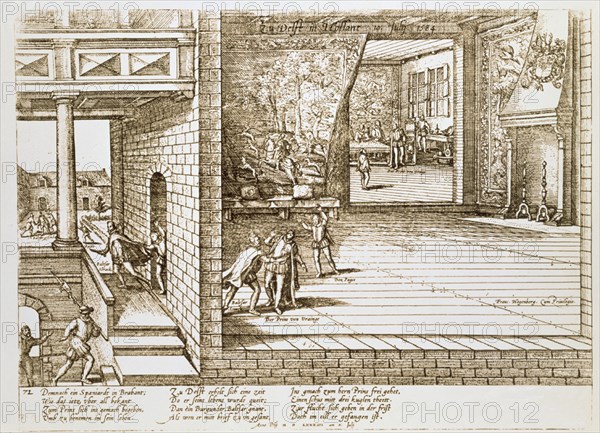 Zu Delft in Hollant 10 July 1584
Balthasar
Ein Page
Balthasar
Der Prins von Orainge
Frans Hogenberg. Cum Privilegio.
72 Demnach ein Spaniardt in Brabant,
Wie das itz vber all bekant,
Zum Prins sich ins gemach begeben,
Vmb zu benemen im sein leben.
Zu Delft erholt sich eine zeit
Do er seins lebens wurde queit;
Dan ein Burgunder, Baltsar gnant,
Als wen er mitt brief zu im gesant,
Ins gemach zum hern Prins frei gehet,
Einen schus mit drei kuglen theitt.
Zur flucht sich geben in der frist
Doch im eill er gefangen ist.
photo12
photo12
photo12